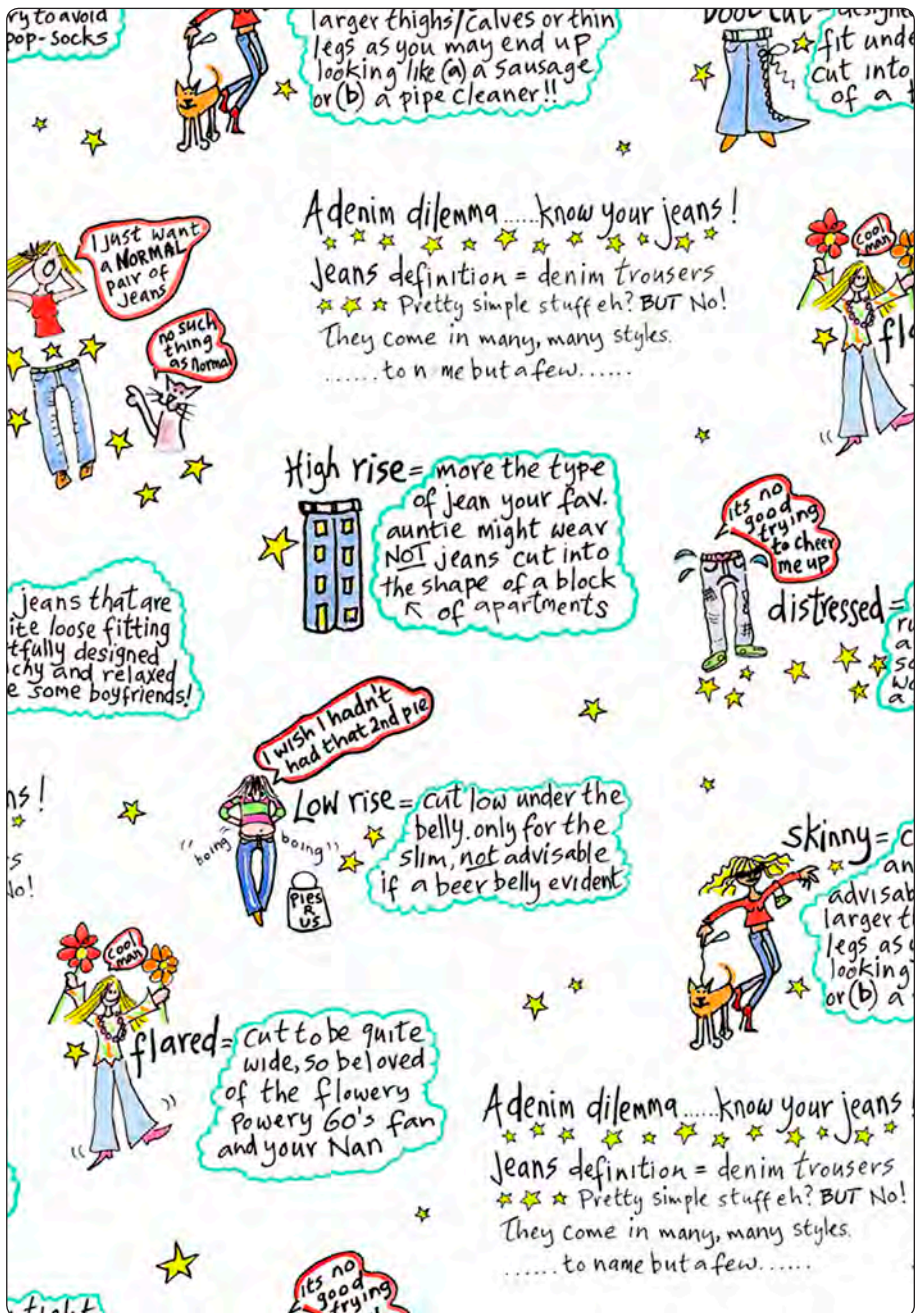 ry to avoid
pop-socks
larger thighs/calves or thin
legs as you may end up
looking like (a) a sausage
or (b) a pipe cleaner!!
fit unde
cut into
of a
A denim dilemma......know your jeans!
Jeans definition = denim trousers
Pretty simple stuff eh? BUT No!
They come in many, many styles.
......to n me but a few......
I just want
a NORMAL
pair of
jeans
no such
thing
as normal
cool
man
fl
High rise = more the type
of jean your fav.
auntie might wear
NOT jeans cut into
the shape of a block
of apartments
its no
good
trying
to cheer
me up
distressed =
ru
a
so
wo
a
jeans that are
ite loose fitting
tfully designed
chy and relaxed
e some boyfriends!
I wish I hadn't
had that 2nd pie
Low rise = cut low under the
belly. only for the
slim, not advisable
if a beer belly evident
"boing boing"
PIES
R
US
ns!
s
No!
skinny = c
an
advisab
larger t
legs as
looking
or (b) a
cool
man
flared = cut to be quite
wide, so beloved
of the flowery
Powery 60's fan
and your Nan
A denim dilemma......know your jeans
Jeans definition = denim trousers
Pretty simple stuff eh? BUT No!
They come in many, many styles.
......to name but a few......
its no
good
trying
tight